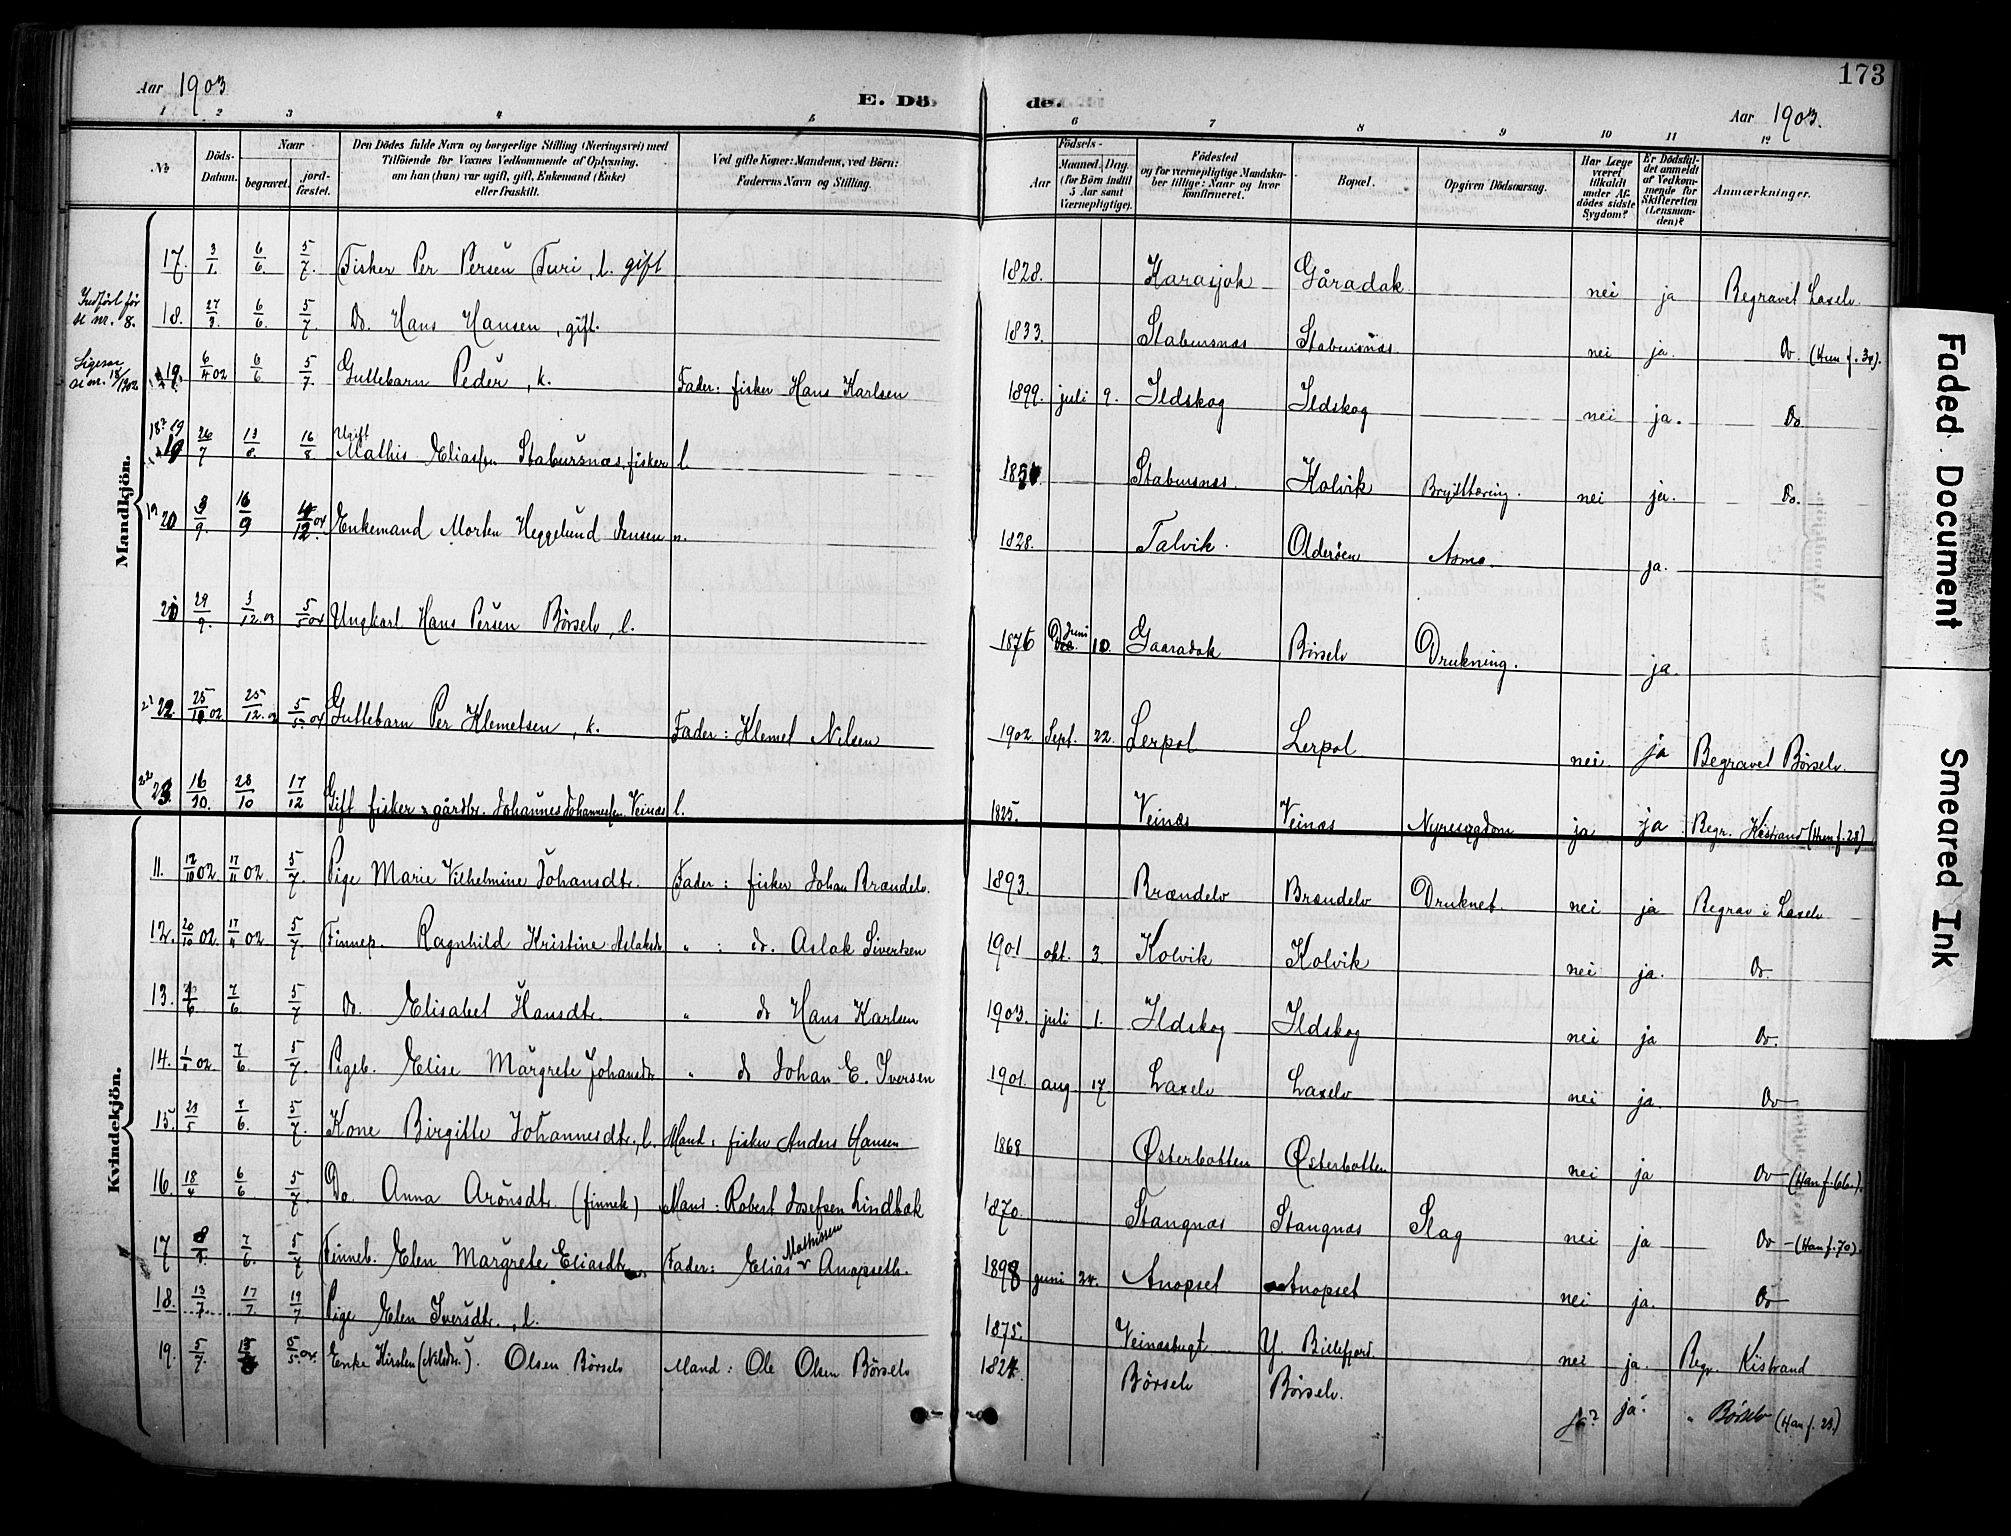 173
Aar 1903
E. Dö
de.
Aar 1903.
1 2 3 4 5 6 7 8 9 10 11 12
№
Döds-Datum.
Naar
begravet.
jord-fæstet.
Den Dödes fulde Navn og borgerlige Stilling (Næringsvei) med
Tilföiende for Voxnes Vedkommende af Oplysning,
om han (hun) var ugift, gift, Enkemand (Enke)
eller fraskilt.
Ved gifte Koner: Mandens, ved Börn:
Faderens Navn og Stilling.
Födsels-
Aar
Maaned. Dag.
(for Börn indtil
5 Aar samt
Værnepligtige).
Födested
og for værnepligtige Mandska-
ber tillige: Naar og hvor
konfirmeret.
Bopæl.
Opgiven Dödsaarsag.
Har Læge
været
tilkaldt
under Af-
dödes sidste
Sygdom?
Er Dödsfal-
det anmeldt
af Vedkom-
mende for
Skifteretten
(Lensman-
den)?
Anmærkninger.
Mandkjön.
17. 3/1. 6/6. 5/7. Fisker Per Persen Turi, l. gift 1828. Karasjok Gåradak nei ja Begravet Laxelv.
Indført før se nr. 8.
18. 27/3. 6/6. 5/7. Do. Hans Hansen, gift. 1833. Stabursnæs Stabursnæs. nei ja. Do. (Hun f. 34).
19. 6/4 02 6/6 5/7. Guttebarn Peder, k. Fader: fisker Hans Karlsen 1899. juli 9. Ildskog Ildskog nei ja. Do
19 26/7 13/8. 16/8. Ugift Mathis Eliassen Stabursnæs, fisker l. Stabursnæs. Kolvik Brysttæring. nei ja. Do.
20 3/9. 16/9 Enkemand Morten Heggelund Jensen n. 1828. Talvik. Olderöen Asma. ja.
29/9. 3/12. 03 5/5 04 Ungkarl Hans Persen Börselv, l. 1876 Juni 10. Gaaradak Börselv Drukning. ja.
22. 25/10 02 25/12. 02 5/5. 04 Guttebarn Per Klemetsen, k. Fader: Klemet Nilsen 1902. Sept. 22. Lerpol Lerpol nei ja Begravet Börselv.
23. 16/10. 28/10 17/12 Gift fisker & gårdbr. Johannes Johannessen Veinæs l. 1825. Veinæs Veinæs Nyresygdom ja ja Begr. Kistrand (Hun f. 28)
Kvindekjön.
11. 12/10 02. 17/11 02. 5/7 Pige Marie Vilhelmine Johansdtr. Fader: fisker Johan Brændelv. 1893. Brændelv Brændelv Druknet. nei ja Begrav i Laxelv
12. 20/10 02. 17/11 02 5/7 Finnep. Ragnhild Kristine Aslaksdtr " : do. Aslak Sivertsen 1901 okt. 3. Kolvik Kolvik nei ja. Do.
13. 7/6. 5/7 do. Elisabet Hansdtr. " do Hans Karlsen 1903. juli 1. Ildskog Ildskog nei ja Do.
14. 7/6 5/7. Pigeb. Elise Margrete Johansdtr " do Johan E. Iversen 1901. aug. 17. Laxelv Laxelv nei ja. Do
15. 23/5 7/6. 5/7. Kone Birgitte Johannesdtr., l. Mand: fisker Anders Hansen 1868 Østerbotten Østerbotten nei ja Do (Han f. 66.)
16. 18/4 6/6 5/7. Do. Anna Aronsdtr. (finnek) Mand: Robert Josefsen Lindbæk 1870. Stangnæs Stangnæs Slag nei ja Do (Han f. 70).
17 7/6. 5/7 Finneb. Elen Margrete Eliasdtr Fader: Elias Mathissen Anopseth. 1898 juni 24. Anopset Anopset nei ja. Do
18. 13/7. 17/7. 19/7 Pige Elen Iversdtr., l. 1875. Veinæsbugt Y. Billefjord. nei ja. Begr. Kistrand
19. 5/7. 5/5. 04. Enke Kirsten (Nilsdtr.). Olsen Börselv Mand: Ole Olsen Börselv 1824. Börselv Börselv. ja? ja. " Börselv (Han f. 23.)
Faded Document
Smeared Ink